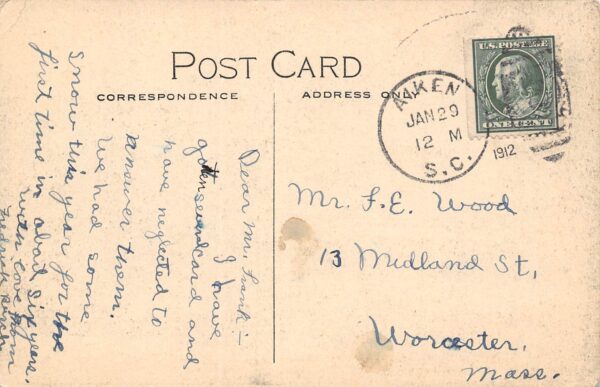 POST CARD
CORRESPONDENCE
ADDRESS ONLY
U.S. POSTAGE
ONE CENT
AIKEN
JAN 29
12 M
S.C.
1912
Dear Mr. Frank:—
I have
gotten several card and
have neglected to
answer them.
We had some
snow this year for the
first time in abad six years.
with love from
Fredrick
Mr. F. E. Wood
13 Midland St,
Worcester,
Mass.